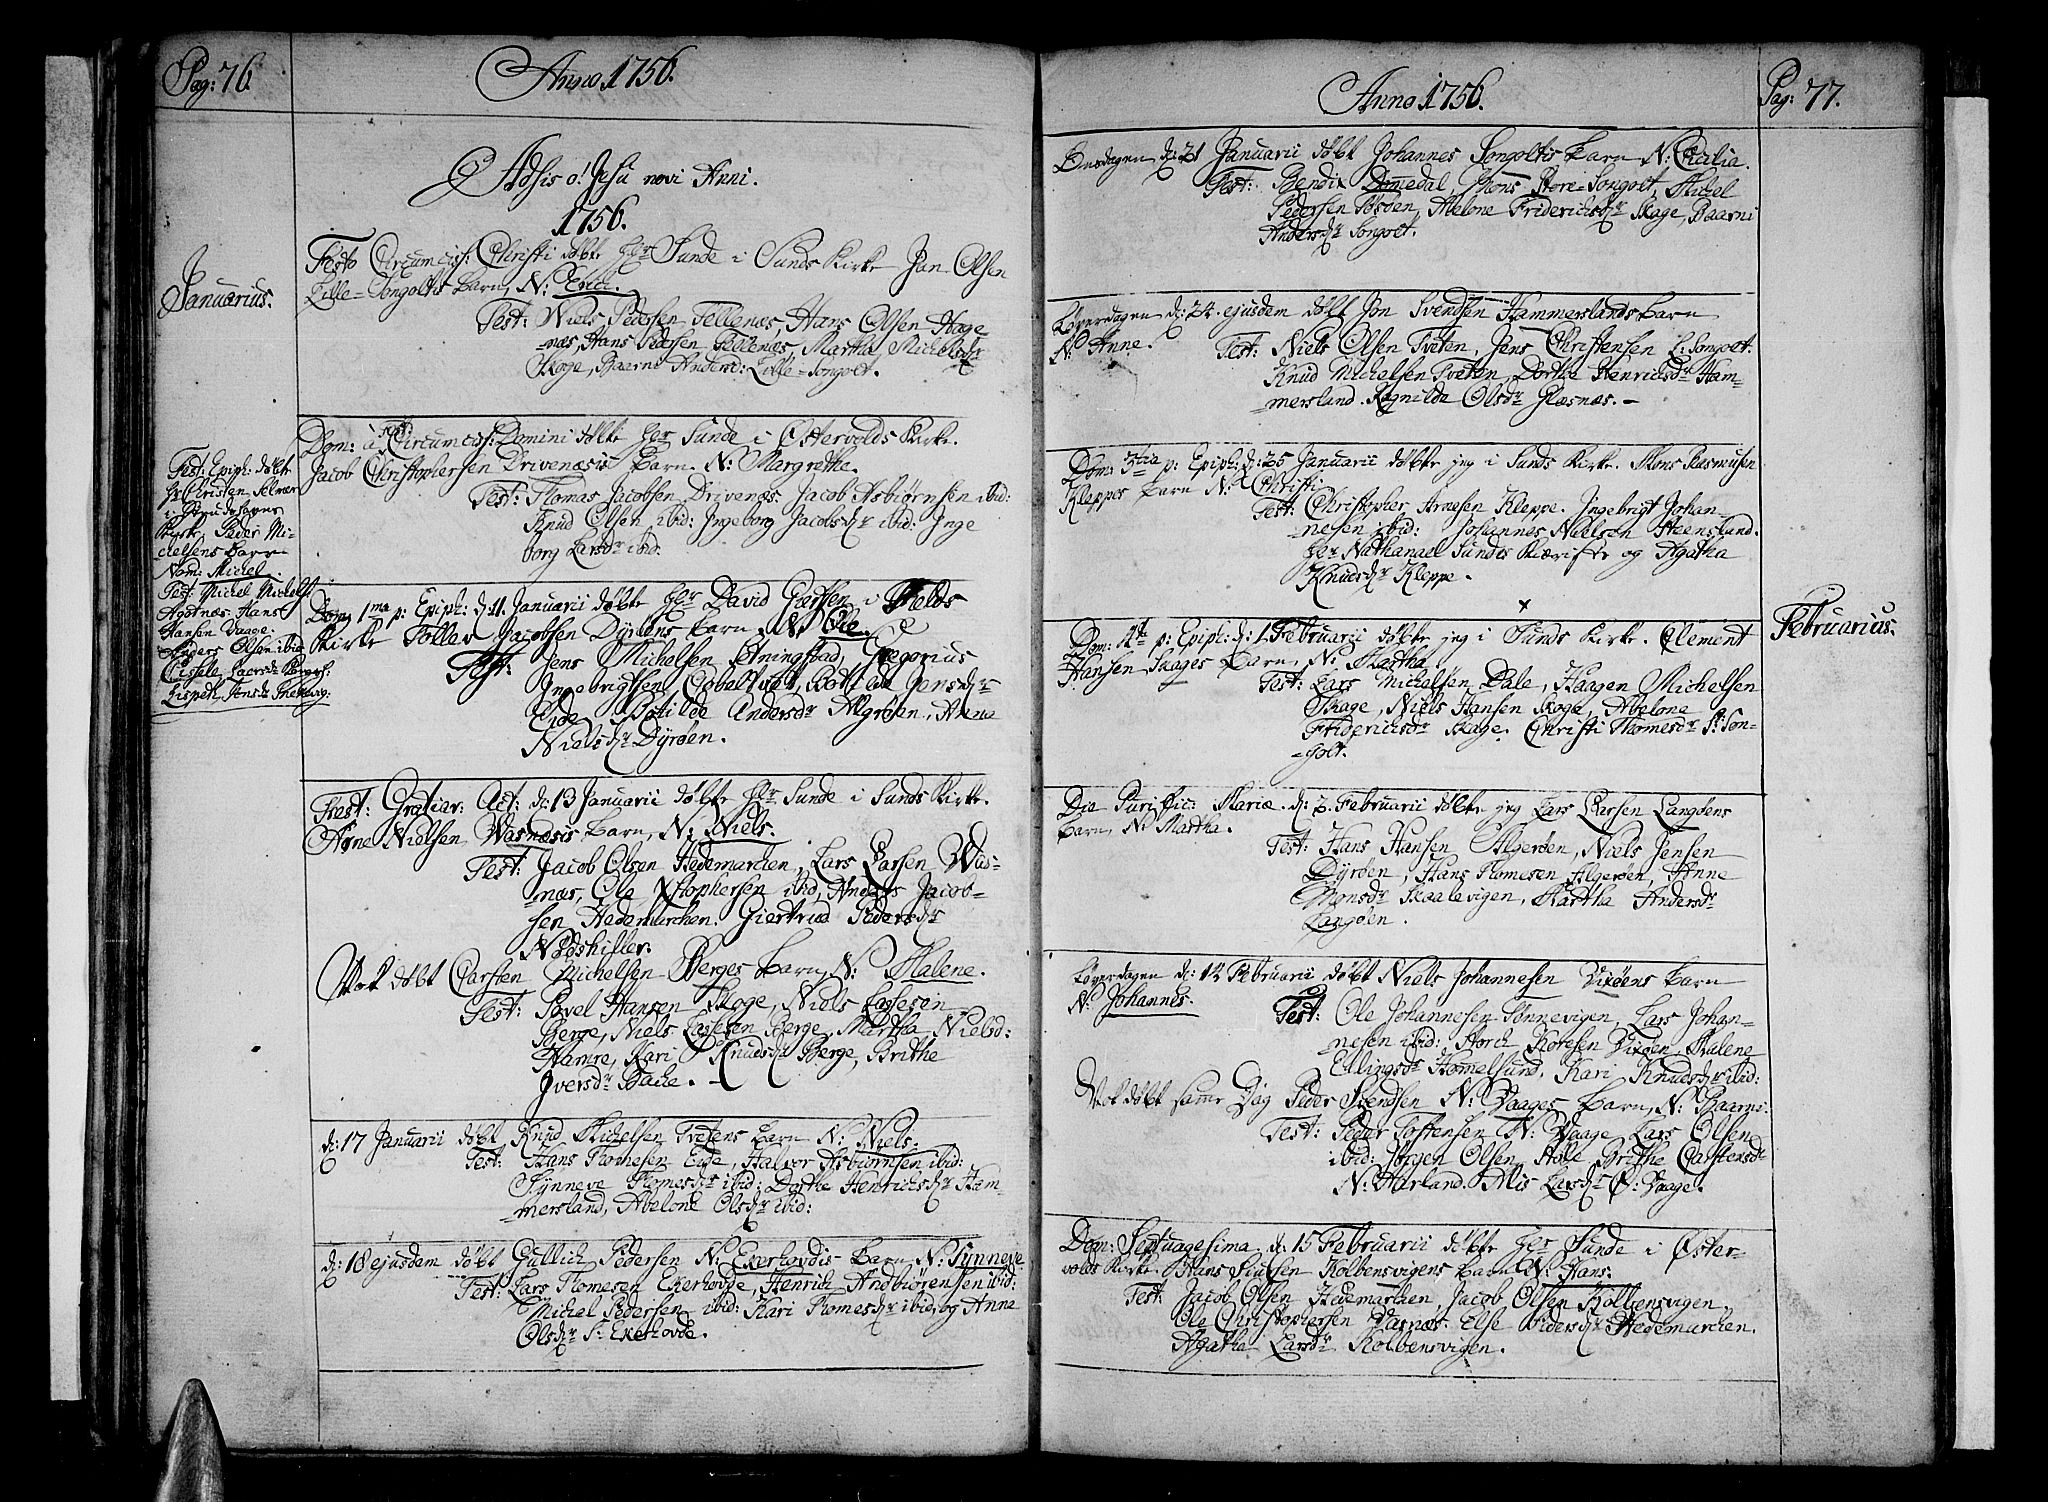 Pag: 76.
Anno 1756.
Adsis o! Jesu novi Anni.
1756.
Januarius.
Festo Circumcis: Christi døbte Hr Sunde i Sunds Kirke Jan Olsen
Lille-Songoltis barn, N: Erich.
Test: Niels Pedersen Tellenæs, Hans Olsen Hage
næs, Hans Pedersen Tellenæs, Martha Michelsdr
Skoge, Baarni Andersd: Lille-Songolt.
Dom: à Circumcis: Domini døbte Hr Sunde i Østervolds Kirke.
Jacob Christophersen Drivenæsis Barn. N: Margrethe.
Test: Thomas Jacobsen Drivenæs. Jacob Asbiørnsen ibid:
Knud Olsen ibid: Ingeborg Jacobsdr ibid: Inge
borg Larsdr ibid.
Fest: Epiph: døbte
Hr Christen
i
Kirke Peder Mi-
chelsens barn
Nom: Michel.
Test: Michel Michels:
Agotnæs. Hans
Hansen Vaage.
Anders Olsen ibid
Dom: 1ma p: Epiph: d: 11. Januarii døbte Hr David Giertsen i Fields
Kirke Tollev Jacobsen Dyrøens barn N: Ole.
Test: Jens Michelsen Etningstad, Gregorius
Ingebrigtsen, Botilde Jensdr
Eide, Botilde Andersdr Algrøen, Anne
Nielsdr Dyrøen.
Fest: Gratiar: Act: d: 13 Januarii døbte Hr Sunde i Sunds Kirke.
Arne Nielsen Wasnæsis barn, N: Niels.
Test: Jacob Olsen Hedemarchen, Lars Larsen Was-
næs, Ole Xstophersen ibid, Anders Jacob-
sen Hedemarchen. Giertrud Pedersdr
Nødskiffer.
Nok døbt Carsten Michelsen Berges barn, N: Malene.
Test: Povel Hansen Skoge, Niels Lassesøn
Berge, Niels Larsesen Berge, Martha Nielsd:
Hamre, Kari Knudsdr Berge, Brithe
Iversdr Bache.
d: 17 Januarii døbt Knud Michelsen Tvetens barn N: Niels.
Test: Hans Thomesen Eide, Halvor Asbiørnsen ibid:
Synneve Thomesdr ibid: Dorthe Henrichsdr Ham-
mersland, Abelone Olsdr ibid:
d: 18 ejusdem døbt Gullich Pedersen N: Ekerhovdis barn, N: Synneve
Test: Lars Thomesen Ekerhovde, Henrich Andbiørensen ibid:
Michel Pedersen ibid: Kari Thomesdr ibid, og Anne
Olsdr S: Ekerhovde.
Anno 1756.
Pag: 77.
Onsdagen d: 21 Januarii døbt Johannes Songoltis barn N: Cicilia.
Test: Bendix Dommedal, Mons Store-Songolt, Michel
Pedersen Tøsøen, Abelone Friderichsdr Skage, Baarni
Andersdr Songolt.
Løverdagen d: 24. ejusdem døbt Jon Svendsen Hammerslands barn
N: Anne.
Test: Niels Olsen Tveten, Jens Christensen L: Songolt.
Knud Michelsen Tveten, Dorthe Henricsdr Ham-
mersland. Ragnilde Olsdr Glæsnæs. -
Dom: 3tia p: Epiph: d: 25 Januarii døbte jeg i Sunds Kirke. Mons Rasmusen
Kleppes barn N: Christi
Test: Christopher Arnesen Kleppe. Ingebrigt Johan-
nesen ibid: Johannes Nielsen Steensland.
Hr Nathanael Sundes Kiæriste og Agatha
Knudsdr Kleppe.
Februarius.
Dom: 4ta p: Epiph: d: 1. Februarii døbte jeg i Sunds Kirke. Clement
Hansen Skages barn, N: Martha
Test: Lars Michelsen Dale, Haagen Michelsen
Skage, Niels Hansen Skoge, Abelone
Friderichsdr Skage. Christi Thomesdr St: Son-
golt.
Die Purific: Mariæ. d: 2. Februarii døbte jeg Lars Larsen Langøens
barn, N: Martha.
Test: Hans Hansen Algerøen, Niels Jensen
Dyrøen, Hans Thomesen Algerøen, Anne
Monsdr Skaalevigen, Martha Andersdr
Langøen.
Løverdagen d: 14 Februarii døbt Niels Johannesen Vixøens barn
N: Johannes.
Test: Ole Johannesen Tønnevigen, Lars Johan-
nesen ibid: Korsen Vixøen, Malene
Ellingsdr Homelsund, Kari Knudsdr ibid:
Nok døbt same Dag Peder Svendsen N: Vaages barn, N: Baarni.
Test: Peder Tostensen N: Vaage, Lars Olsen
ibid: Jørgen Olsen, Grethe Carstensdr
N: Harland. Larsdr Ø: Vaage.
Dom: Septuagesima d: 15 Februarii døbte Hr Sunde i Øster-
volds Kirke. Hans Kolbensvigens barn N: Hans.
Test: Jacob Olsen Hedemarchen, Jacob Olsen Kolbensvigen,
Ole Christophersen Vasnæs. Else Pedersdr Hedemarchen.
Agathe Larsdr Kolbensvigen.